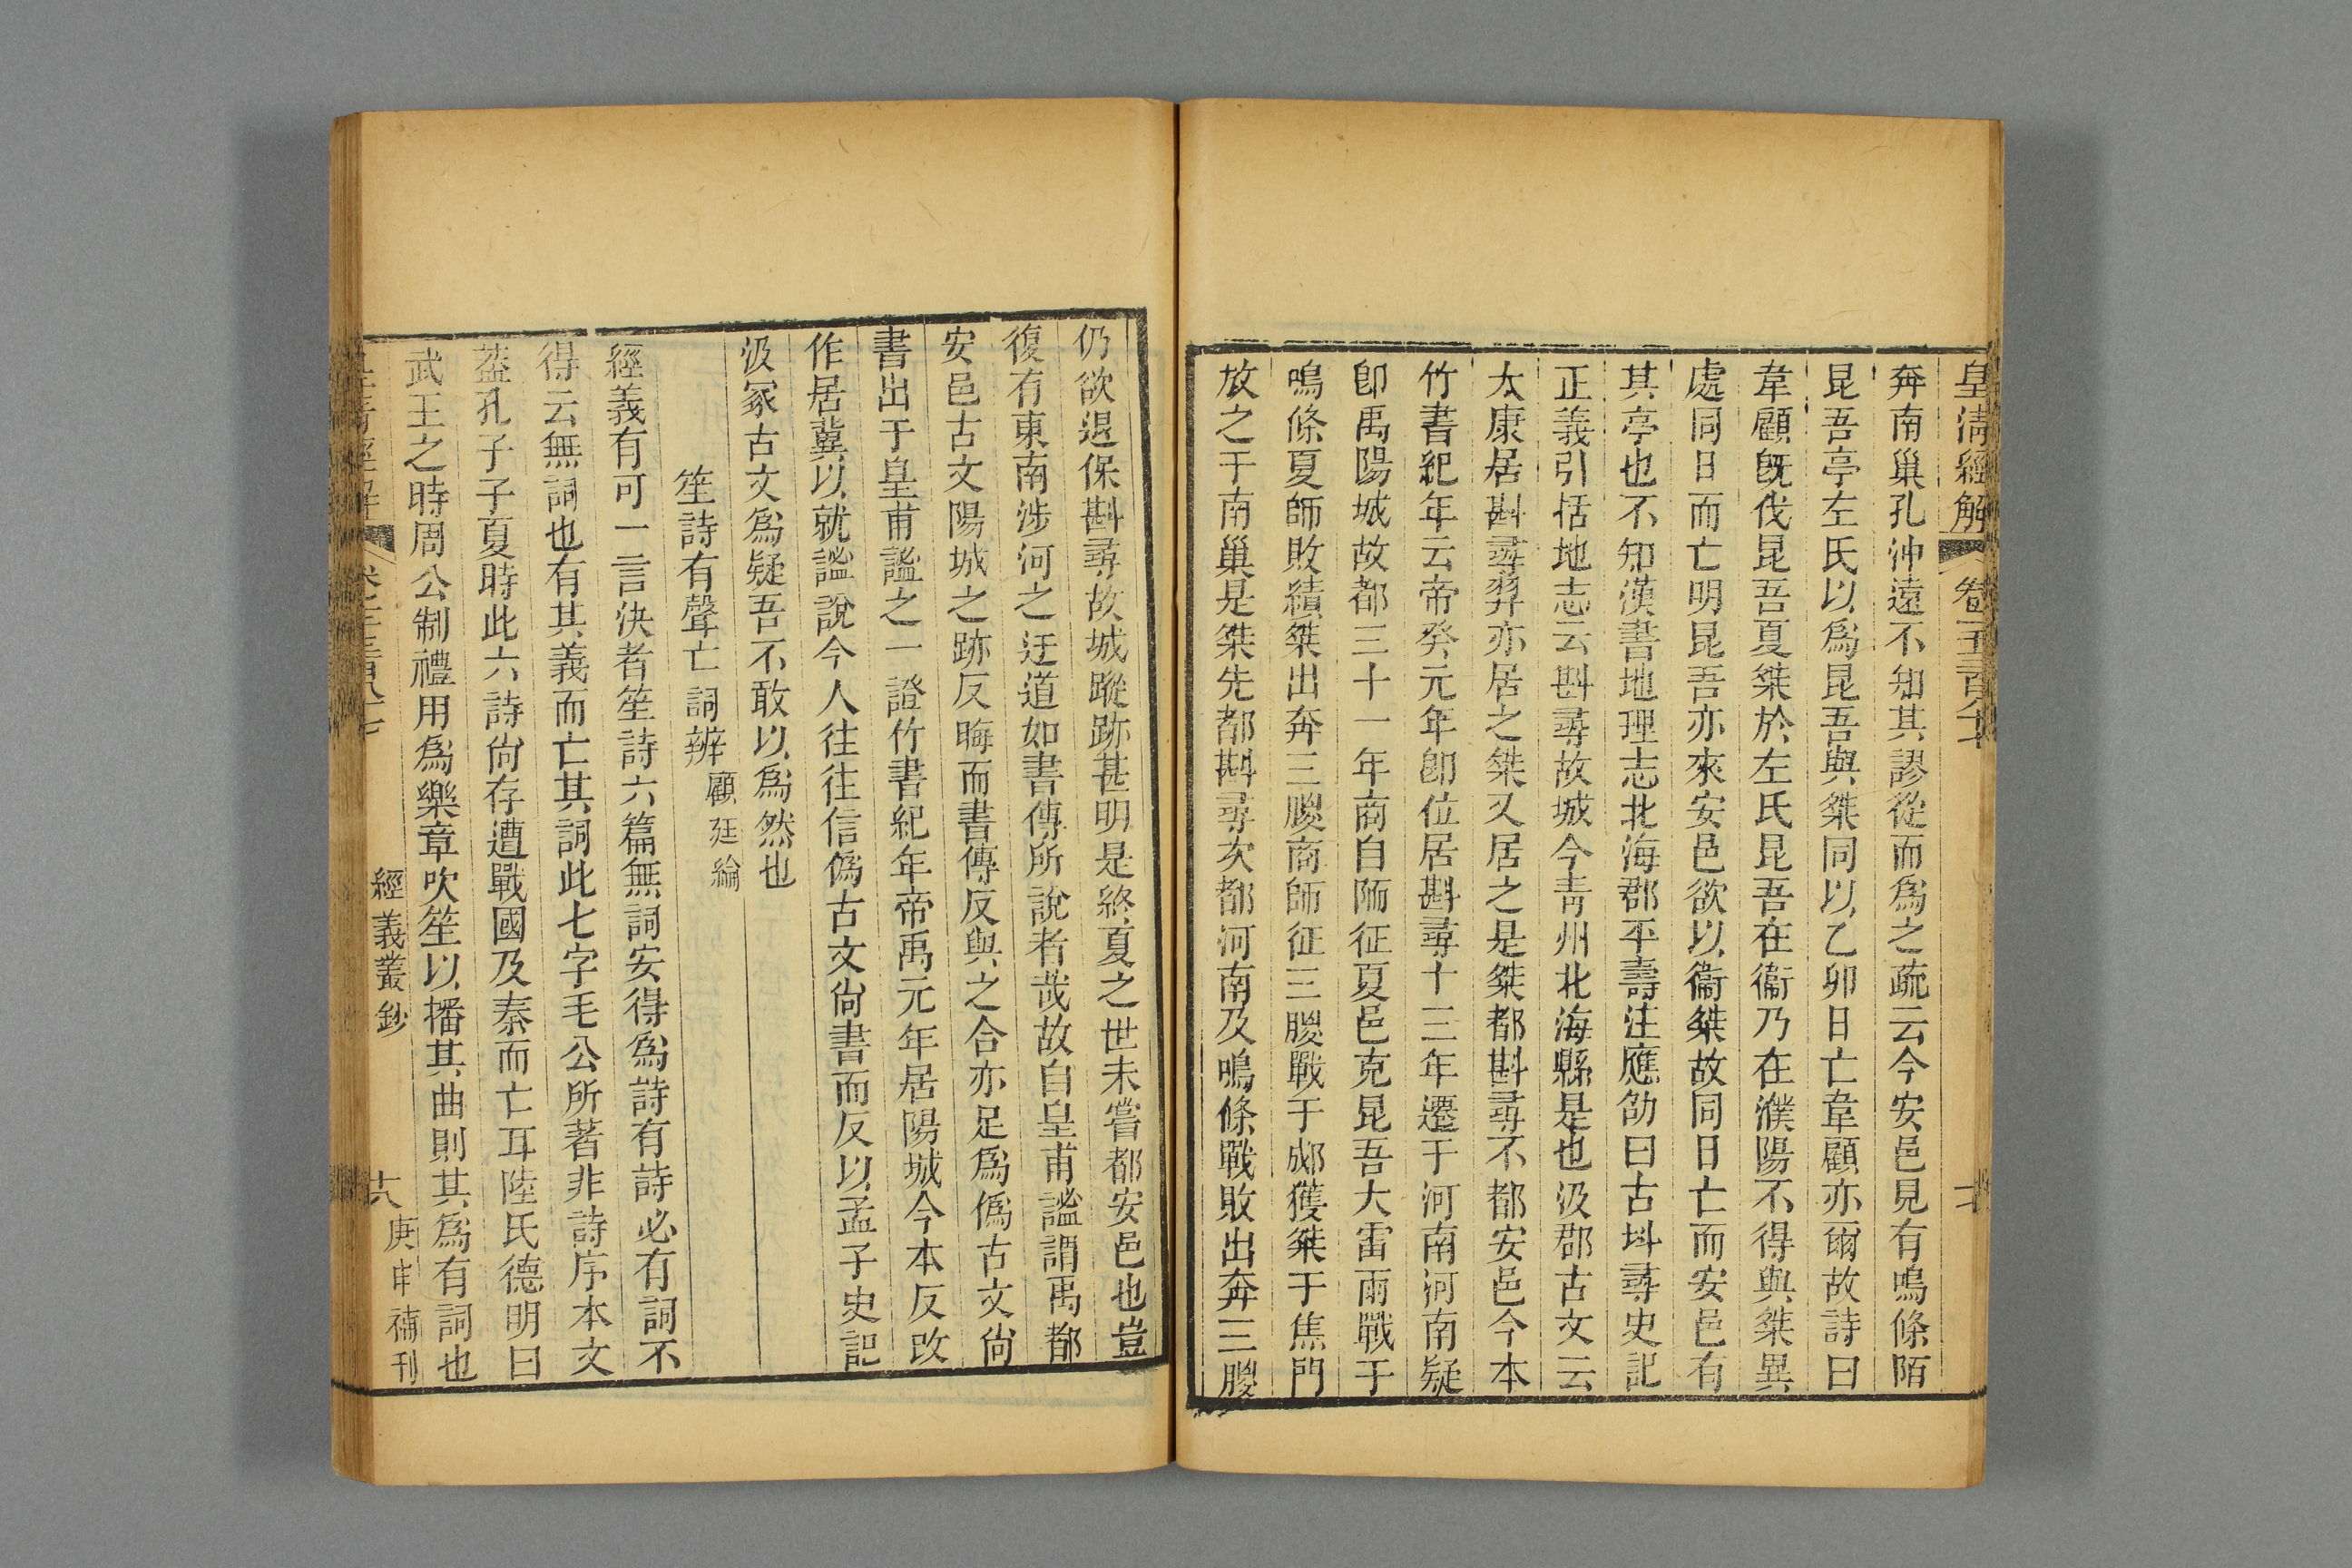 皇清經解
奔南巢孔沖遠不知其謬從而爲之疏云今安邑見有鳴條陌
昆吾亭左氏以爲昆吾與桀同以乙卯日亡韋顧亦爾故詩曰
韋顧旣伐昆吾夏桀於左氏昆吾在衞乃在濮陽不得與桀異
處同日而亡明昆吾亦來安邑欲以衞桀故同日亡而安邑有
其亭也不知漢書地理志北海郡平壽注應劭曰古㪷尋史記
正義引括地志云斟尋故城今靑州北海縣是也汲郡古文云
太康居斟尋羿亦居之桀又居之是桀都斟尋不都安邑今本
竹書紀年云帝癸元年卽位居斟尋十三年遷于河南河南疑
卽禹陽城故都三十一年商自陑征夏邑克昆吾大雷雨戰于
鳴條夏師敗績桀出奔三朡商師征三朡戰于郕獲桀于焦門
放之于南巢是桀先都斟尋次都河南及鳴條戰敗出奔三朡
仍欲退保斟尋故城蹤跡甚明是終夏之世未嘗都安邑也豈
復有東南涉河之迂道如書傳所說者哉故自皇甫謐謂禹都
安邑古文陽城之跡反晦而書傳反與之合亦足爲僞古文尙
書出于皇甫謐之一證竹書紀年帝禹元年居陽城今本反改
作居冀以就謐說今人往往信僞古文尙書而反以孟子史記
汲冢古文爲疑吾不敢以爲然也
笙詩有聲亡詞辨 顧廷綸
經義有可一言決者笙詩六篇無詞安得爲詩有詩必有詞不
得云無詞也有其義而亡其詞此七字毛公所著非詩序本文
葢孔子子夏時此六詩尙存遭戰國及秦而亡耳陸氏德明曰
武王之時周公制禮用爲樂章吹笙以播其曲則其爲有詞也
經義叢鈔
六 庚申補刊